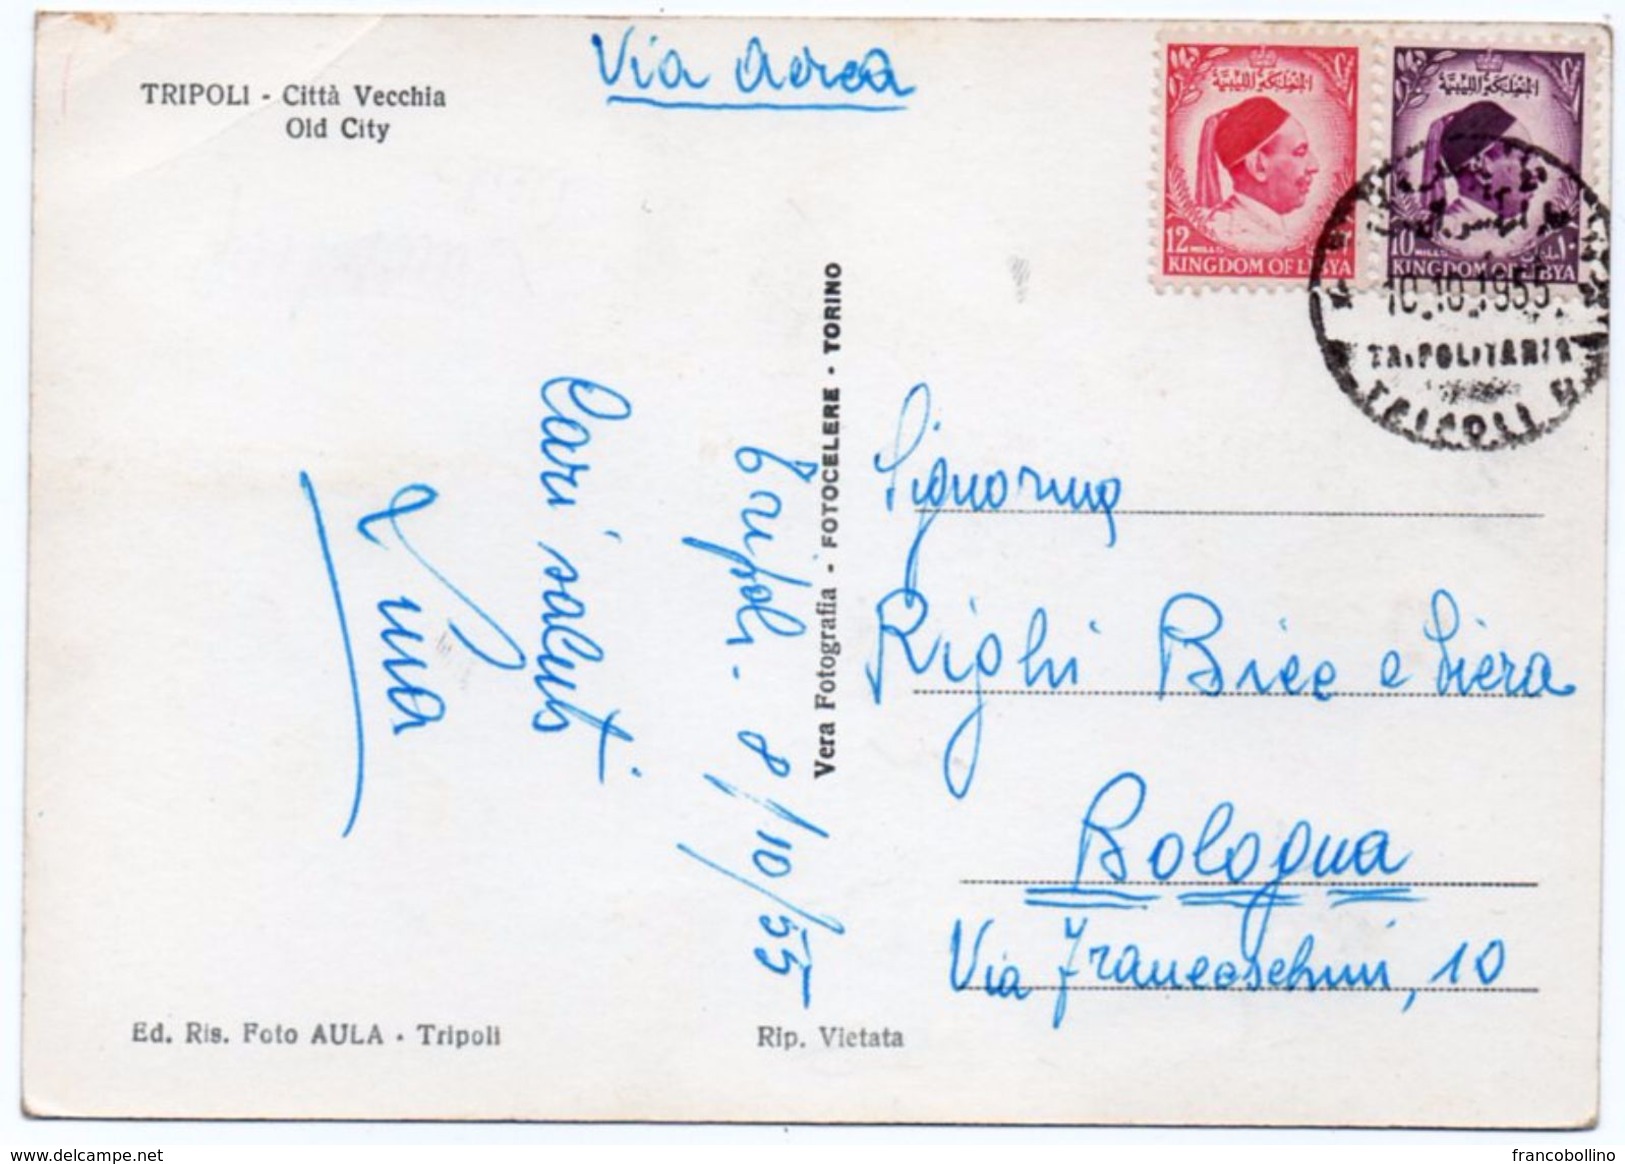 TRIPOLI - Città Vecchia
Old City
Via Aerea
المملكة الليبية
12 MILLS
KINGDOM OF LIBYA
المملكة الليبية
10 MILLS
KINGDOM OF LIBYA
10.10.1955
TRIPOLITANIA
TRIPOLI
Tripoli. 8/10/55
Cari saluti
Lina
Vera Fotografia - FOTOCELERE - TORINO
Signorina
Righi Bice e Liera
Bologna
Via Franceschini, 10
Ed. Ris. Foto AULA - Tripoli
Rip. Vietata
delcampe.net
francobollino